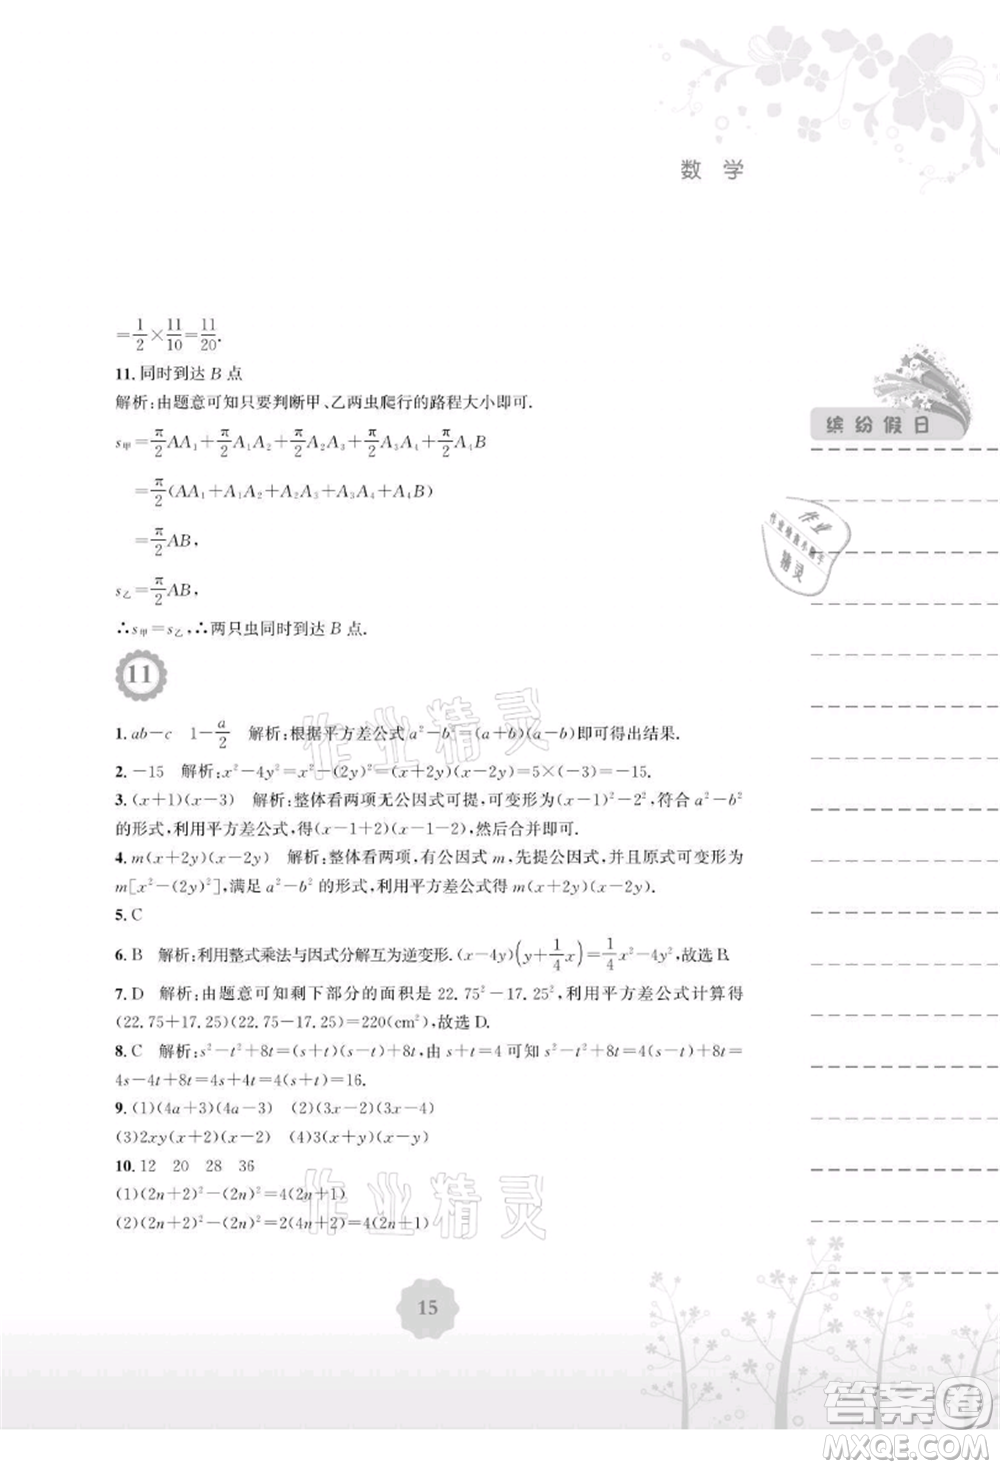 数 学
=1/2×11/10=11/20.
11.同时到达 B 点
解析:由题意可知只要判断甲、乙两虫爬行的路程大小即可.
s甲=π/2AA₁+π/2A₁A₂+π/2A₂A₃+π/2A₃A₄+π/2A₄B
=π/2(AA₁+A₁A₂+A₂A₃+A₃A₄+A₄B)
=π/2AB,
s乙=π/2AB,
∴s甲=s乙,∴两只虫同时到达 B 点.
缤纷假日
作业
作业检查小助手
精灵
11
1.ab-c 1-a/2 解析:根据平方差公式 a²-b²=(a+b)(a-b)即可得出结果.
2.-15 解析:x²-4y²=x²-(2y)²=(x+2y)(x-2y)=5×(-3)=-15.
3.(x+1)(x-3) 解析:整体看两项无公因式可提,可变形为(x-1)²-2²,符合 a²-b²
的形式,利用平方差公式,得(x-1+2)(x-1-2),然后合并即可.
4.m(x+2y)(x-2y) 解析:整体看两项,有公因式 m,先提公因式,并且原式可变形为
m[x²-(2y)²],满足 a²-b² 的形式,利用平方差公式得 m(x+2y)(x-2y).
5.C
6.B 解析:利用整式乘法与因式分解互为逆变形.(x-4y)(y+1/4x)=1/4x²-4y²,故选 B.
7.D 解析:由题意可知剩下部分的面积是 22.75²-17.25²,利用平方差公式计算得
(22.75+17.25)(22.75-17.25)=220(cm²),故选 D.
8.C 解析:s²-t²+8t=(s+t)(s-t)+8t,由 s+t=4 可知 s²-t²+8t=4(s-t)+8t=
4s-4t+8t=4s+4t=4(s+t)=16.
9.(1)(4a+3)(4a-3) (2)(3x-2)(3x-4)
(3)2xy(x+2)(x-2) (4)3(x+y)(x-y)
10.12 20 28 36
(1)(2n+2)²-(2n)²=4(2n+1)
(2)(2n+2)²-(2n)²=2(4n+2)=4(2n+1)
作业精灵
作业精灵
15
答案圈
MXQE.COM